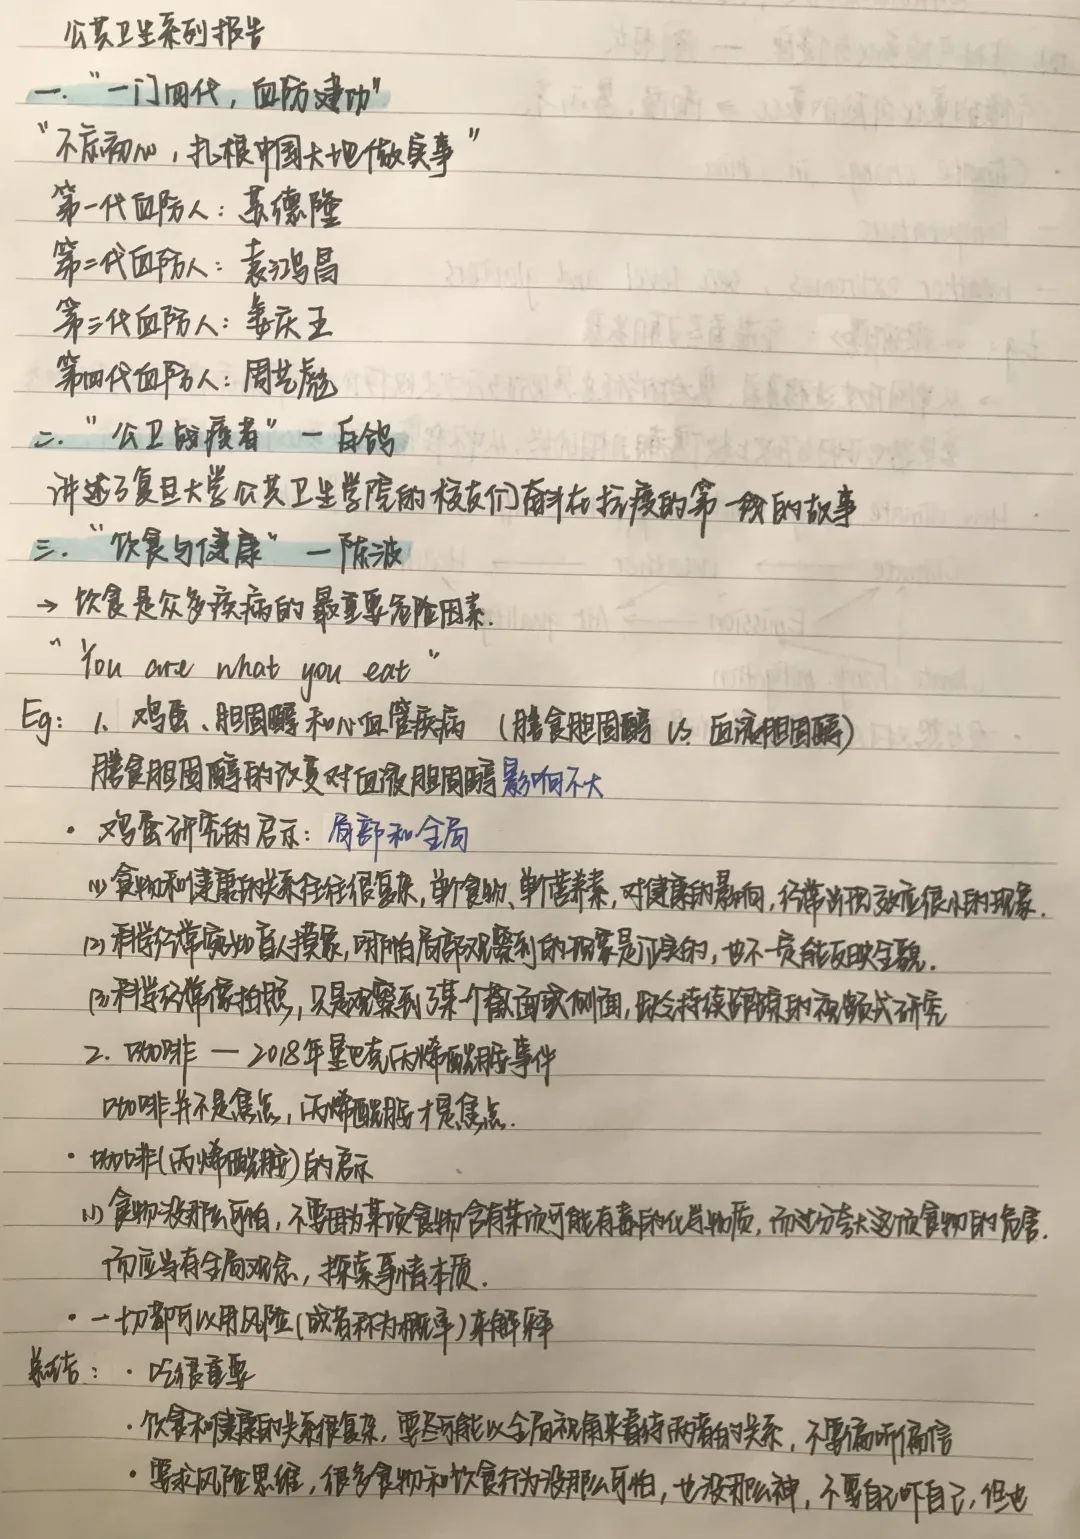 公共卫生系列报告
一.“一门四代，血防建功”
“不忘初心，扎根中国大地做实事”
第一代血防人：苏德隆
第二代血防人：袁鸿昌
第三代血防人：姜庆五
第四代血防人：周艺彪
二.“公卫战疫者”—白鸽
讲述了复旦大学公共卫生学院的校友们奋斗在抗疫的第一线的故事
三.“饮食与健康”—陈波
→ 饮食是众多疾病的最重要危险因素.
“You are what you eat”
Eg: 1. 鸡蛋、胆固醇和心血管疾病 (膳食胆固醇 VS 血液胆固醇)
膳食胆固醇的改变对血液胆固醇影响不大
· 鸡蛋研究的启示: 局部和全局
(1)食物和健康的关系往往很复杂,单个食物、单个营养素,对健康的影响,经常出现效应很小的现象.
(2)科学经常宛如盲人摸象,哪怕局部观察到的现象是证实的,也不一定能反映全貌.
(3)科学经常像拍照,只是观察到了某一个截面或侧面,缺乏持续跟踪的视频式研究
2. 咖啡 — 2018年星巴克丙烯酰胺事件
咖啡并不是焦点,丙烯酰胺才是焦点.
· 咖啡(丙烯酰胺)的启示
(1)食物没那么可怕,不要因为某项食物含有某项可能有毒的化学物质,而过分夸大这项食物的危害.
而应当有全局观念,探索事情本质.
· 一切都可以用风险(或者称为概率)来解释
总结: · 吃很重要
· 饮食和健康的关系很复杂,要尽可能以全局视角来看待两者的关系,不要偏听偏信
· 要求风险思维,很多食物和饮食行为没那么可怕,也没那么神,不要自己吓自己,但也